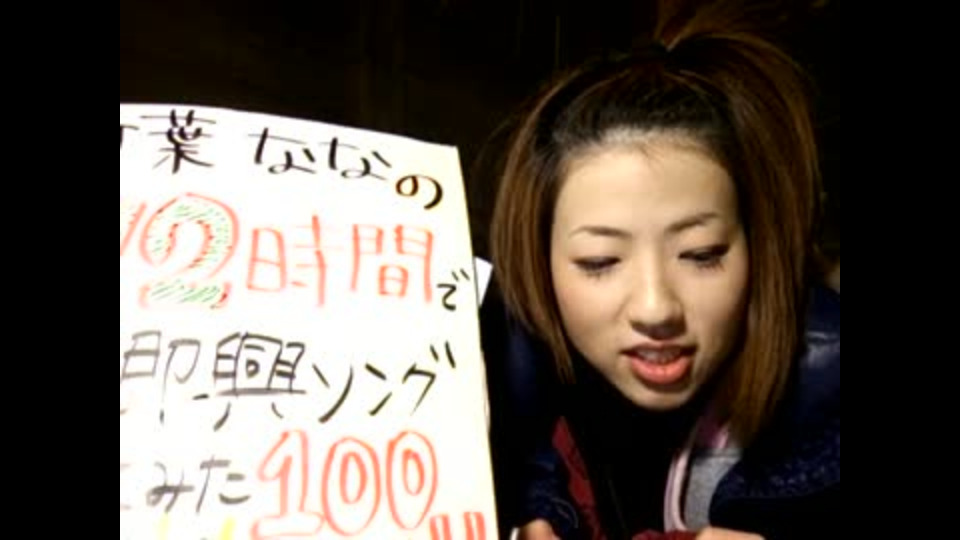 葉ななの
2時間で
即興ソング
みた100